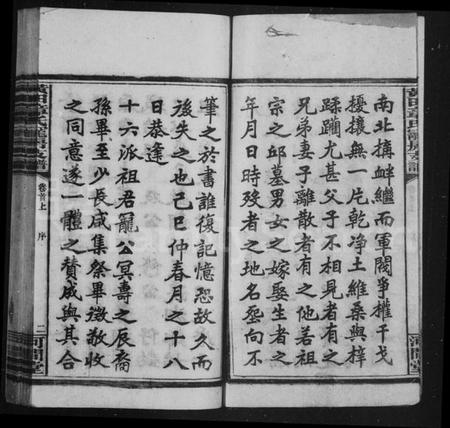 南北搆衅繼而軍閥爭權干戈
擾攘無一片乾淨土維桑與梓
蹂躪尤甚父子不相見者有之
兄弟妻子離散者有之他若祖
宗之邱墓男女之嫁娶生者之
年月日時歿者之地名葬向不
筆之於書誰復記憶恐故久而
後失之也己巳仲春月之十八
日恭逢
十六派祖君寵公冥壽之辰裔
孫畢至少長咸集祭畢徵敬收
之同意遂一體之賛成與其合
卷首上
序
二
河間堂